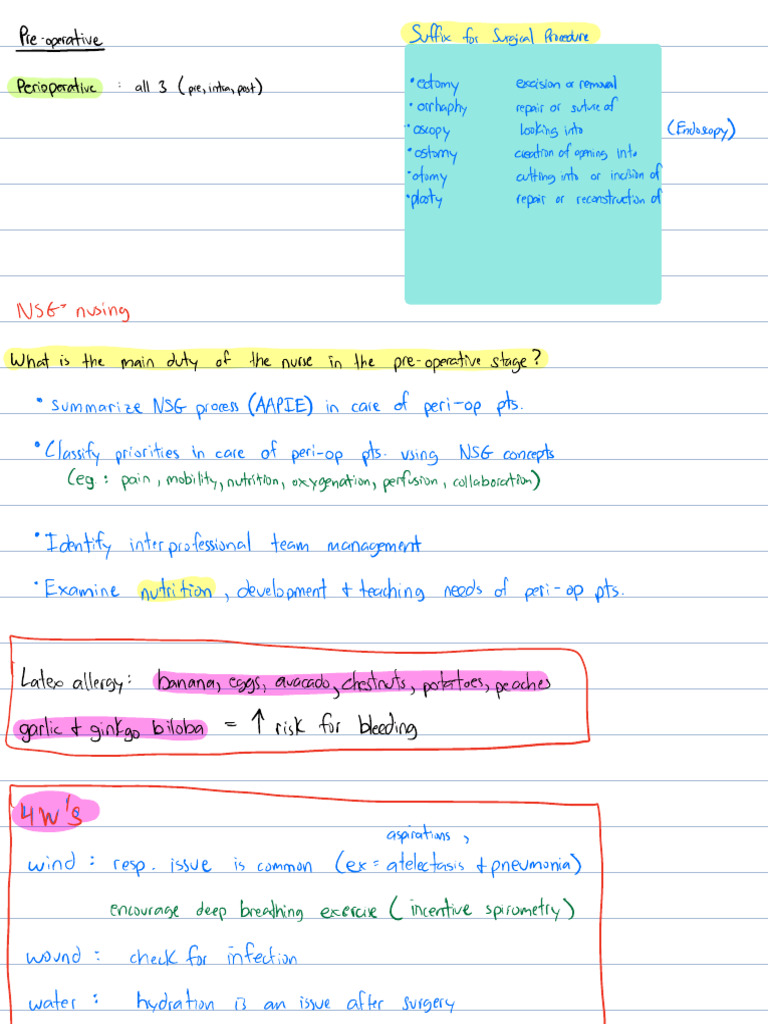 Pre-operative
Perioperative : all 3 (pre, intra, post)
Suffix for Surgical Procedure
• ectomy excision or removal
• orrhaphy repair or suture of
• oscopy looking into (Endoscopy)
• ostomy creation of opening into
• otomy cutting into or incision of
• plasty repair or reconstruction of
NSG= nusing
What is the main duty of the nurse in the pre-operative stage?
• Summarize NSG process (AAPIE) in care of peri-op pts.
• Classify priorities in care of peri-op pts. using NSG concepts
(eg: pain, mobility, nutrition, oxygenation, perfusion, collaboration)
• Identify interprofessional team management
• Examine nutrition, development + teaching needs of peri-op pts.
Latex allergy: banana, eggs, avacado, chestnuts, potatoes, peaches
garlic + ginkgo biloba = ↑ risk for bleeding
4 W's
aspirations,
wind : resp. issue is common (ex = atelectasis + pneumonia)
encourage deep breathing exercise (incentive spirometry)
wound : check for infection
water : hydration is an issue after surgery